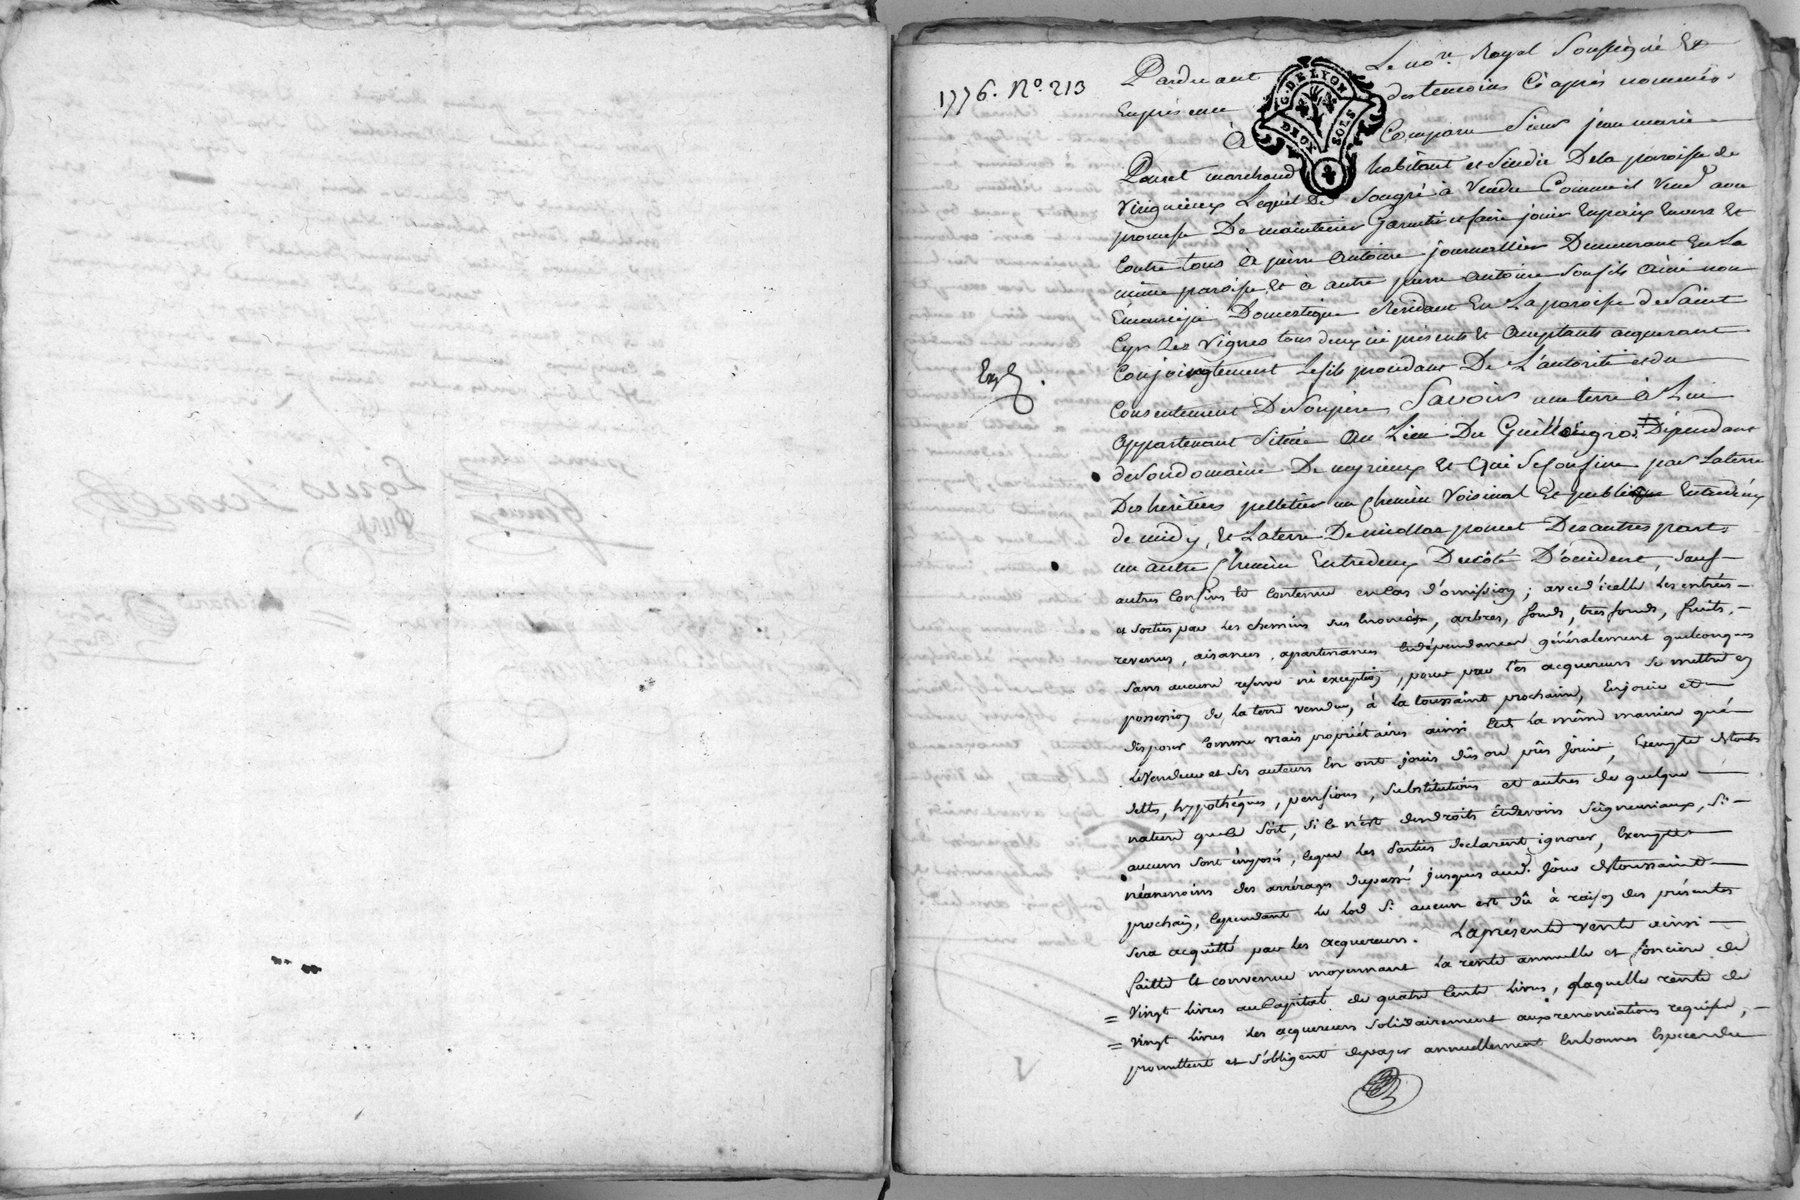 1776. N.° 213
Pardevant Le no.re Royal soussigné Et
En présence des temoins Cé après nommés
G. DE LYON
DEUX SOLS
à Comparu Sieur jean marie
Poncet marchand habitant et sindic De la paroisse de
Virigneux Lequel De Songré à Vendu Comme il Vend avec
promesse De maintenir Garantir et faire jouir En paix Envers Et
Contre tous à pierre Antoine journallier Demeurant En La
même paroisse Et à autre pierre Antoine son fils Ainé non
Emancipé Domestique Résidant En La paroisse de Saint
Cyr Les Vignes tous deux icé présents Et acceptants acquerant
Conjoingtement Le fils procédant De L'autorité et du
Exp.
Consentement De Son père Savoir une terre à Lui
Appartenant Située Au Lieu Du Guillongros Dépendant
de Son domaine De Et Qui Se Confine par La terre
Des héritiers pelletier un Chemin Voisinal Et publique Entredeux
de midy, Et La terre De poncet Des autres parts
un autre Chemin Entredeux Du côté D'occident, Sauf
autres Confins Et Contenue en cas d'omission ; avec d'icelle Les entrées
et sorties par Les chemins arbres, fonds, tres fonds, fruits,
revenus, aisances, apartenances Et dépendances généralement quelconques
Sans aucune reserve ni exception, pour par Les acquereurs se mettre en
possession de La terre vendue, à la toussaint prochaine, En jouir et
disposer Comme vrais propriétaires ainsi Et de La même maniere que
Le Vendeur et Ses auteurs En ont joui dû ou pû jouir, Exempte de touts
detts, hypothèques, pensions, Substitutions et autres de quelque
nature quelle Soit, Si ce n'est des droits Et devoirs Seigneuriaux, Si
aucuns Sont imposés, ceque Les Parties declarent ignorer, Exempte
néanmoins des arrérages du passé jusques aud. Jour de toussaint
prochain, Cependant Le Lod Si aucun est dû à raison des présentes
Sera acquitté par Les acquereurs. La présente vente ainsi
faitte Et convenue moyennant La rente annuelle et fonciere de
= Vingt Livres au Capital de quatre Cents Livres, Laquelle rente de
= Vingt Livres Les acquereurs Solidairement aux renonciations requises,
promettent et s'obligent de payer annuellement En bonnes Espèces de